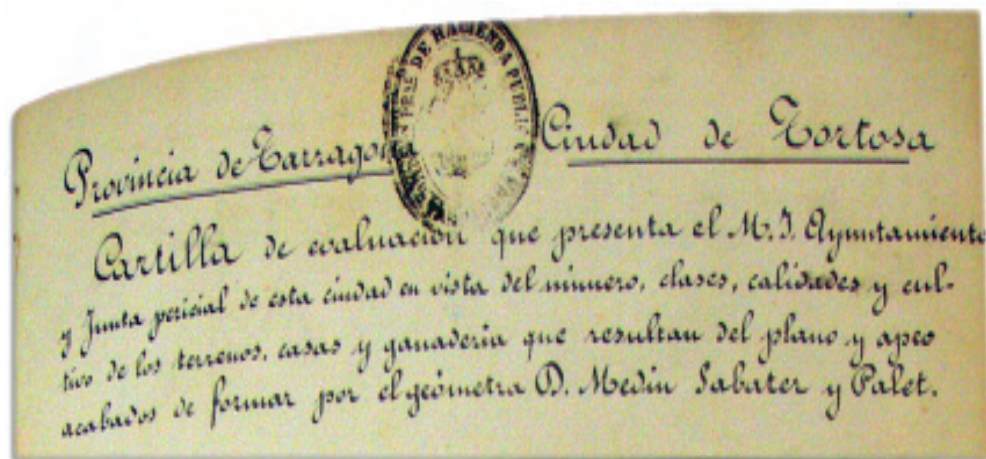 DE HACIENDA PUBLIC
Provincia de Tarragona
Ciudad de Tortosa
Cartilla de evaluación que presenta el M. I. Ayuntamiento
y Junta pericial de esta ciudad en vista del número, clases, calidades y cul-
tivo de los terrenos, casas y ganadería que resultan del plano y apeo
acabados de formar por el geómetra D. Medín Sabater y Palet.